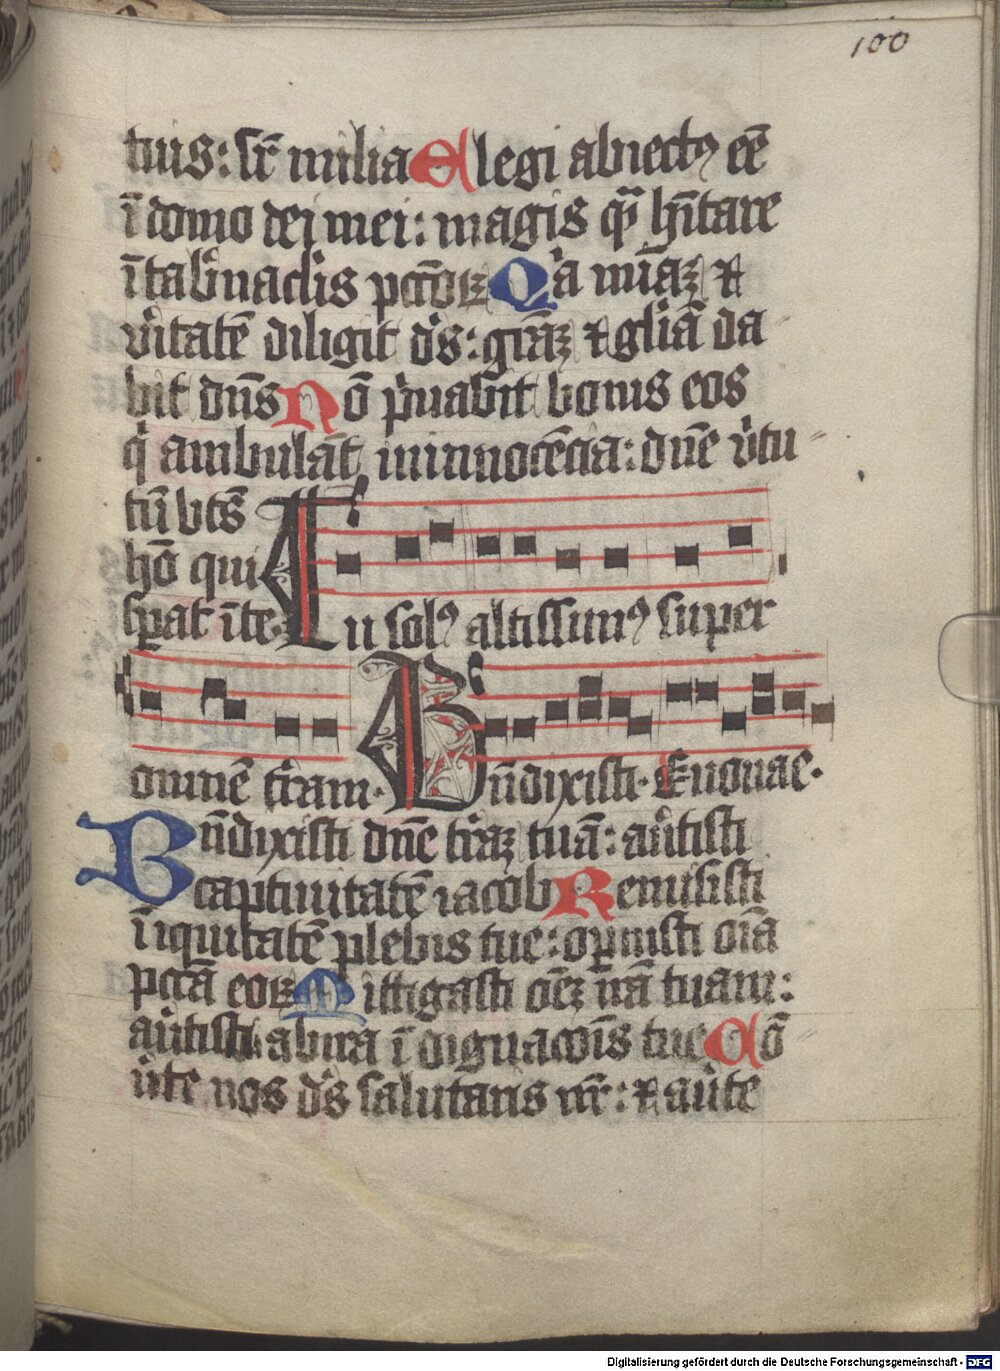 100
tuis: sr̄ milia Elegi abiectꝯ eē
ī domo dei mei: magis qͣ̄ hn̄tare
ī tabͬnaclͥs pccōꝝ Qͥa mīaꝫ ⁊
vͥtatē diligit dͤs: grāꝫ ⁊ gliā da
bit dn̄s Nō pͥuabit bonis eos
qͥ ambulāt in innocēcia: dn̄e vͥtu
tū btꝰs
hō qui
sꝑat ī te. Tu solꝯ altissimꝯ super
omnē tͬram. Bn̄dixisti. Euouae.
Bn̄dixisti dn̄e tͬraꝫ tuā: auͥtisti
captiuitatē iacob Remisisti
īiquitatē plebis tue: oꝑuisti oīa
pccā eoꝝ Mittigasti oēꝫ irā tuam:
auͥtisti ab ira īdignacōis tue Cō
uͥte nos dͤs salutaris nr̄: ⁊ auͥte
Digitalisierung gefördert durch die Deutsche Forschungsgemeinschaft - DFG